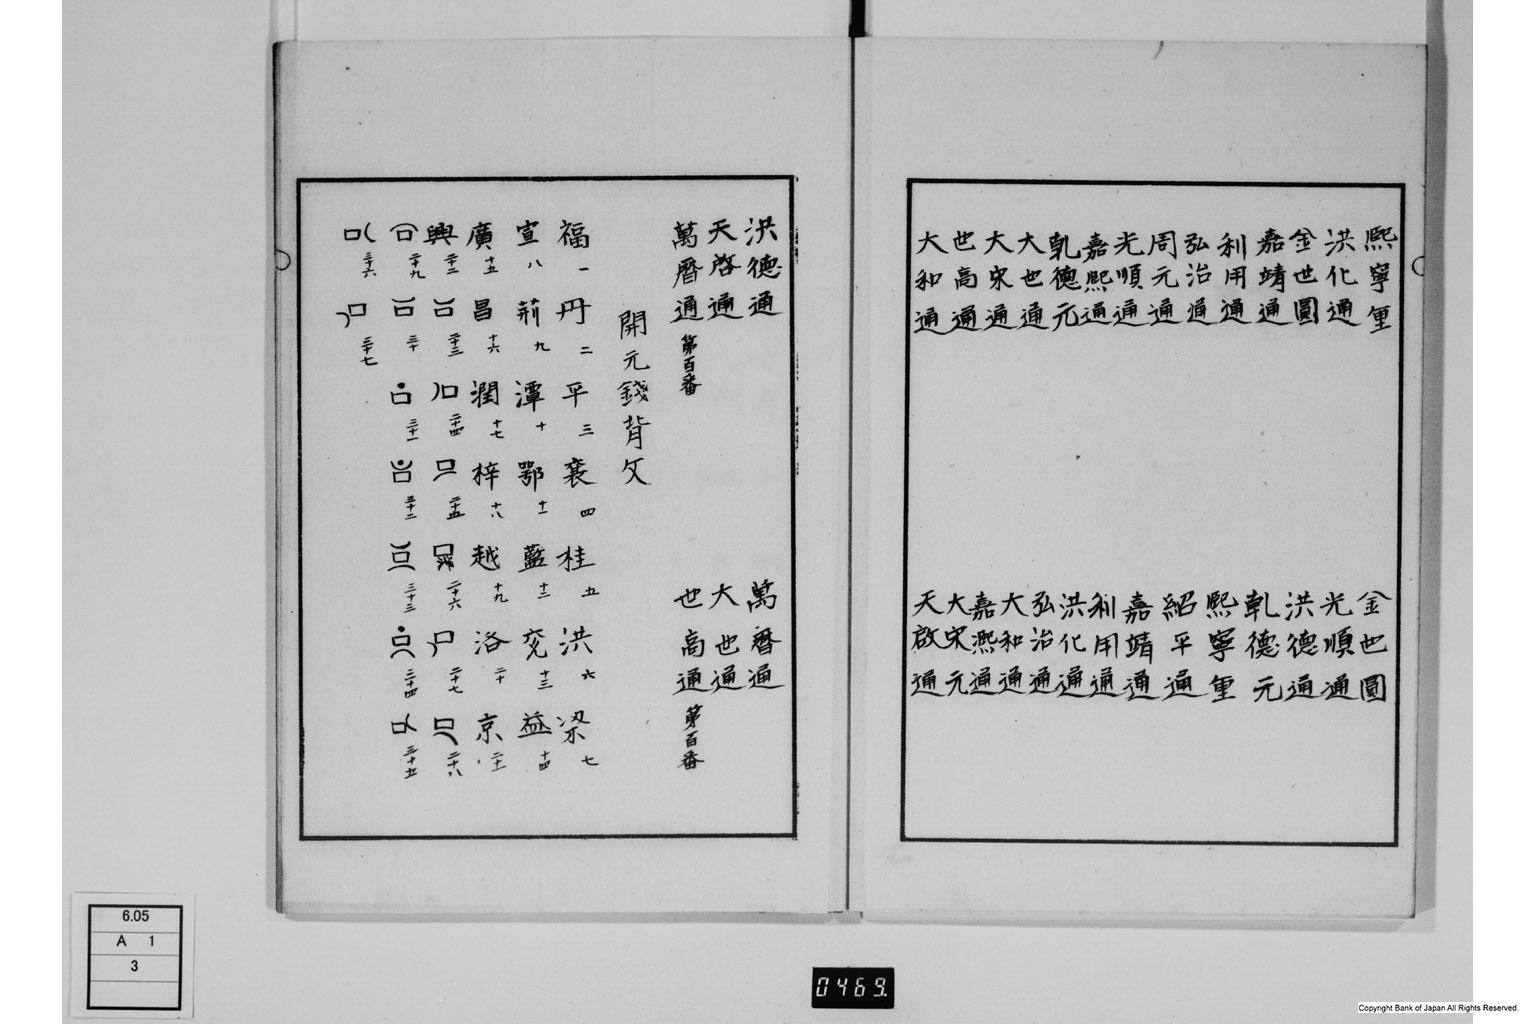 熙寧重
洪化通
金世圓
嘉靖通
利用通
弘治通
周元通
光順通
嘉熙通
乹德元
大世通
大宋通
世高通
大和通
金世圓
光順通
洪德通
乹德元
熙寧重
紹平通
嘉靖通
利用通
洪化通
弘治通
大和通
嘉熙通
大宋元
天啟通
洪德通
天啓通
萬曆通 第百番
萬曆通
大世通
世高通 第百番
開元錢背文
福一 丹二 平三 襄四 桂五 洪六 梁七
宣八 荊九 潭十 鄂十一 藍十二 兗十三 益十四
廣十五 昌十六 潤十七 梓十八 越十九 洛二十 京二十一
興二十二 二十三 二十四 二十五 二十六 二十七 二十八
二十九 三十 三十一 三十二 三十三 三十四 三十五
三十六 三十七
6.05
A 1
3
0469.
Copyright Bank of Japan All Rights Reserved.